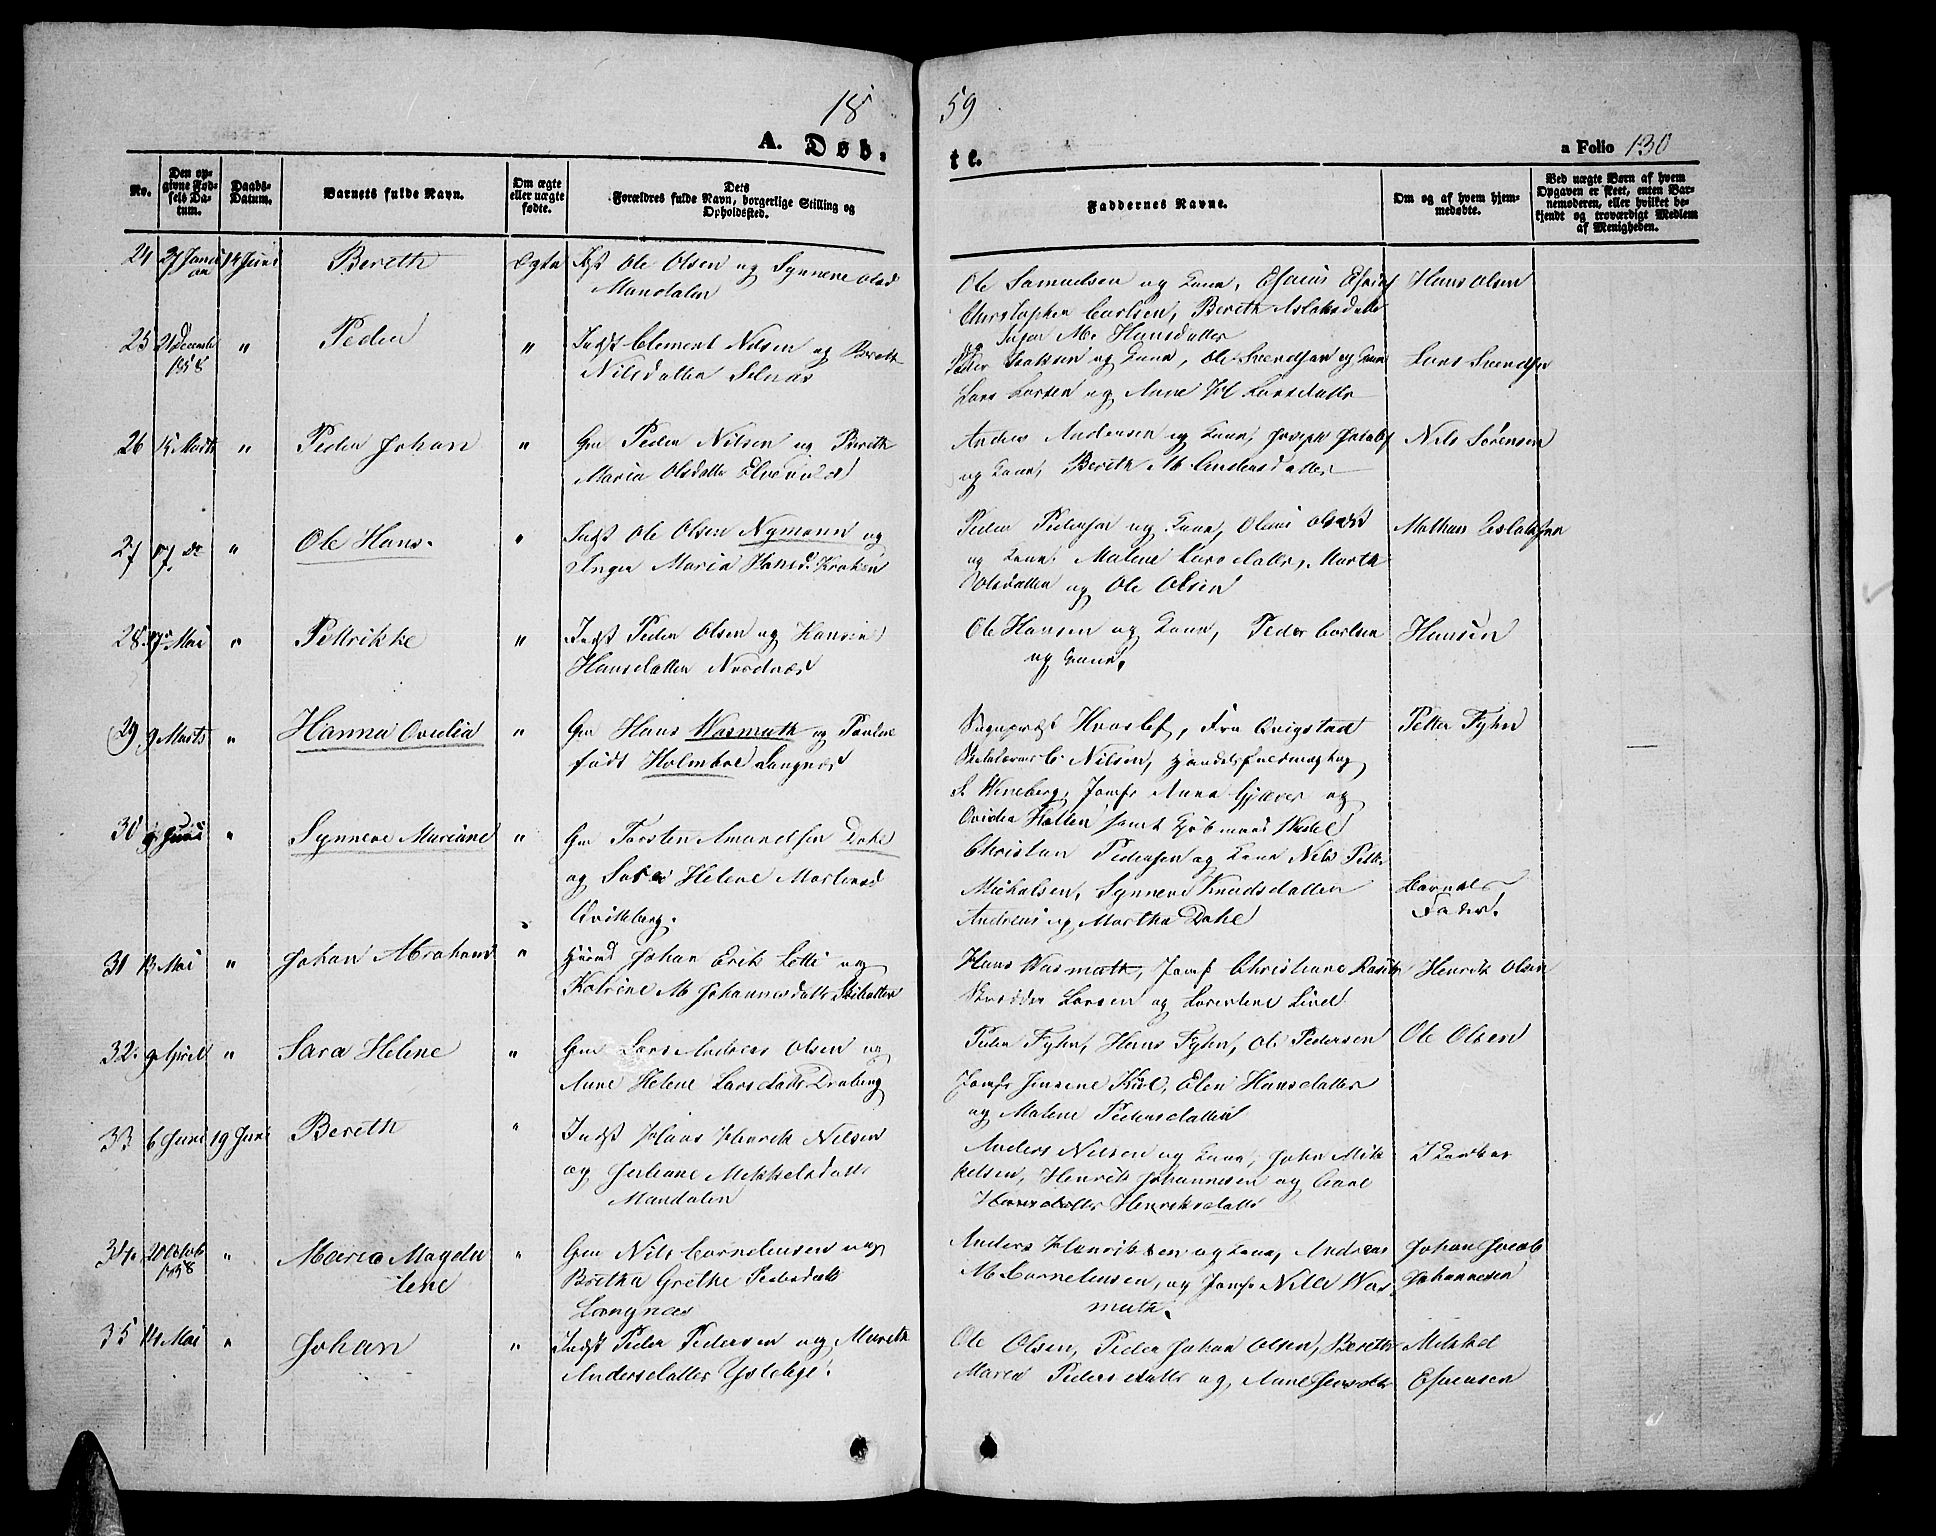 18
59
A. Døb-
te.
a Folio 130
No.
Den op-
givne Fød-
sels Da-
tum.
Daabs-
Datum.
Barnets fulde Navn.
Om ægte
eller uægte
fødte.
Dets
Forældres fulde Navn, borgerlige Stilling og
Opholdssted.
Faddernes Navne.
Om og af hvem hjem-
medøbte.
Ved uægte Børn af hvem
Opgaven er skeet, enten Bar-
nemoderen, eller hvilket be-
kjendt og troværdigt Medlem
af Menigheden.
24 27 Janu 14 Juni Bereth Ægte Indst Ole Olsen og Synneve Olsd
Mandalen
Ole Samuelsen og Kone, Esaias
Christopher Carlsen, Bereth Aslaksdatter
og Inger M. Hansdatter
Hans Olsen
25 21 Decemb
1858 " Peder " Indst Clement Nilsen og Bereth
Nilsdatter Selnæs
Peder Isaksen og Kone, Ole Svendsen og Kone
Lars Larsen og Anne M Larsdatter
Lars Svendsen
26 15 Marts " Peder Johan " Gm Peder Nilsen og Bereth
Maria Olsdatter Elvevold
Anders Andersen og Kone, Joseph
og Kone, Bereth M. Andersdatter
Nils Sørensen
27 17 do " Ole Hans. " Indst Ole Olsen Nymann og
Inger Maria Hansd. Kroken
Peder Pedersen og Kone,
og Kone, Malene Larsdatter, Marth
Olsdatter og Ole Olsen
Mathias Aslaksen
28. 17 Mai " Petrikke " Indst Peder Olsen og Hansine
Hansdatter Nordnæs
Ole Hansen og Kone, Peder Carlsen
og Kone.
Hansen
29 9 Marts " Hanna Ovidia " Gm Hans Wasmuth og Pauline
født Holmboe Langnæs
Sogneprest Hvoslef, Fru Qvigstad
Skolelærer C. Nilsen, Handelsfuldmægtig
S. Weneberg, Jomfr Anna Gjæver og
Ovidia Holten samt Kjøbmand Wadel
Petter Fyhn
30 9 Juni " Synneve Mariane " Gm Torsten Amundsen Dahl
og Sara Helene Mortensd
Hvitteberg.
Christian Pedersen og Kone Nils Petter
Michalsen, Synneve Knudsdatter
Andreas og Martha Dahl
Barnets
Fader.
31 13 Mai " Johan Abraham " Johan Erik Lotti og
Katrine M Johannesdatter Skibotten
Hans Wasmuth, Jomf Christiane
Skrædder Larsen og Lind
Henrik Olsen
32. 9 April " Sara Helene " Gm Lars Andreas Olsen og
Anne Helene Larsdatter Draberg
Peder Fyhn, Hans Fyhn, Ole Pedersen
Jomfr Jensine Kiil, Elen Hansdatter
og Malene Pedersdatter
Ole Olsen
33 6 Juni 19 Juni Bereth " Indst Klaus Henrik Nilsen
og Juliane Mikkelsdatter
Mandalen
Anders Nilsen og Kone, John Mik
kelsen, Henrik Johannesen og
Hansdatter Henriksdatter
34. 20 Octob
1858 " Maria Magda
lene " Gm Nils Corneliussen og
Bretha Grethe Pedersdatter
Langnæs
Anders Henriksen og Kone, Andreas
M Corneliussen, og Jomfr Nille Was
muth.
Johan Jacob
Johannesen
35 14 Mai " Johan " Indst Peder Pedersen og Mareth
Andersdatter
Ole Olsen, Peder Johan Olsen, Bereth
Maria Pedersdatter og Anne
Mikkel
Esaiasen